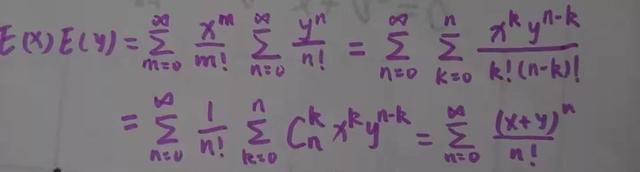 E(x)E(y) = \sum_{m=0}^{\infty} \frac{x^m}{m!} \sum_{n=0}^{\infty} \frac{y^n}{n!} = \sum_{n=0}^{\infty} \sum_{k=0}^{n} \frac{x^k y^{n-k}}{k!(n-k)!}
= \sum_{n=0}^{\infty} \frac{1}{n!} \sum_{k=0}^{n} C_n^k x^k y^{n-k} = \sum_{n=0}^{\infty} \frac{(x+y)^n}{n!}